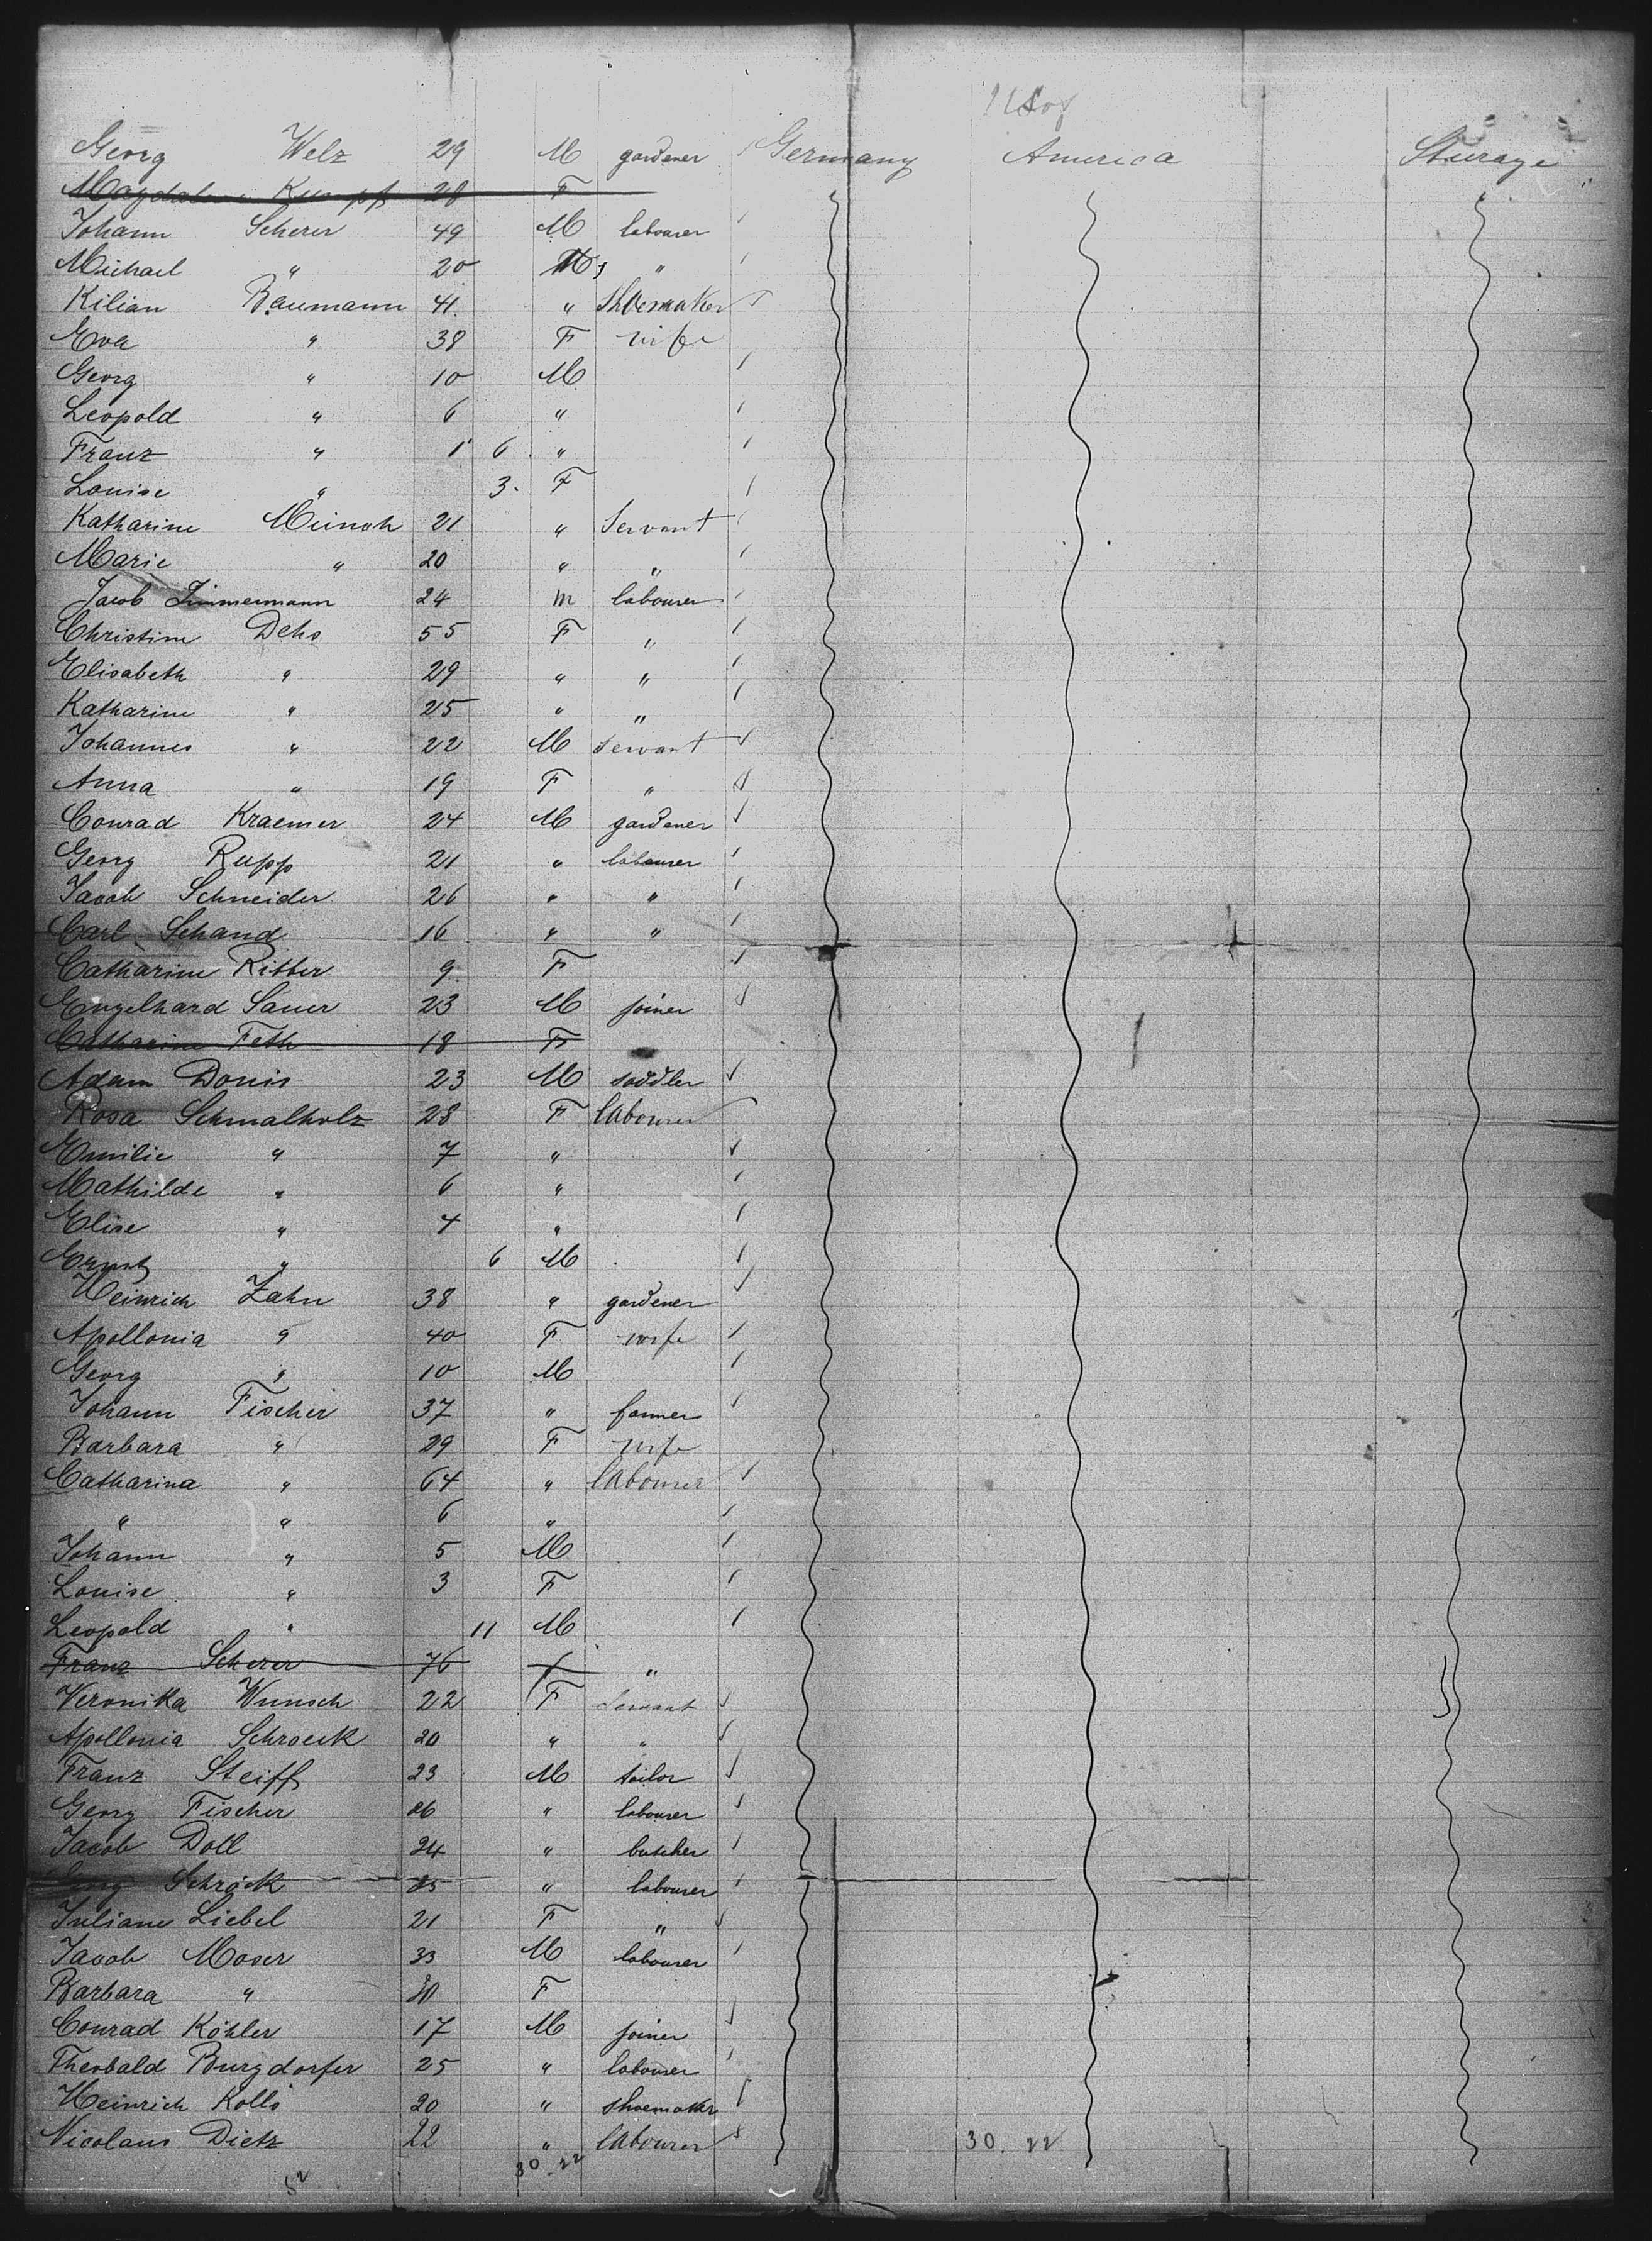 US of
Georg Welz 29 M gardener Germany America Steerage
Magdalena Kumpf 28 F
Johann Scherer 49 M labourer
Michael " 20 M "
Kilian Baumann 41 " Shoemaker
Eva " 38 F wife
Georg " 10 M
Leopold " 6 "
Franz " 1 6 "
Louise " 3 F
Katharine Muench 21 " Servant
Marie " 20 " "
Jacob Zimmermann 24 m labourer
Christine Dehs 55 F "
Elisabeth " 29 " "
Katharine " 25 " "
Johannes " 22 M Servant
Anna " 19 F "
Conrad Kraemer 24 M gardener
Georg Rupp 21 " labourer
Jacob Schneider 26 " "
Carl Schand 16 " "
Catharine Ritter 9 F
Engelhard Sauer 23 M joiner
Catharine Feth 18 F
Adam Donis 23 M saddler
Rosa Schmalholz 28 F labourer
Emilie " 7 "
Mathilde " 6 "
Elise " 4 "
Ernst " 6 M
Heinrich Zahn 38 " gardener
Apollonia " 40 F wife
Georg " 10 M
Johann Fischer 37 " farmer
Barbara " 29 F wife
Catharina " 64 " labourer
" " 6 "
Johann " 5 M
Louise " 3 F
Leopold " 11 M
Franz Scherer 76 "
Veronika Wunsch 22 F Servant
Apollonia Schroeck 20 " "
Franz Steiff 23 M tailor
Georg Fischer 26 " labourer
Jacob Doll 24 " butcher
Georg Schröck 25 " labourer
Juliane Liebel 21 F "
Jacob Moser 33 M labourer
Barbara " F
Conrad Köhler 17 M joiner
Theobald Burgdorfer 25 " labourer
Heinrich Kolls 20 " shoemaker
Nicolaus Dietz 22 " labourer
30. 22 30. 22
52